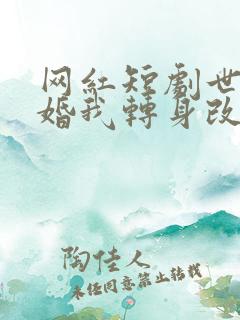 网红短劇世
婚我轉身改
陶佳人
未经同意禁止转载